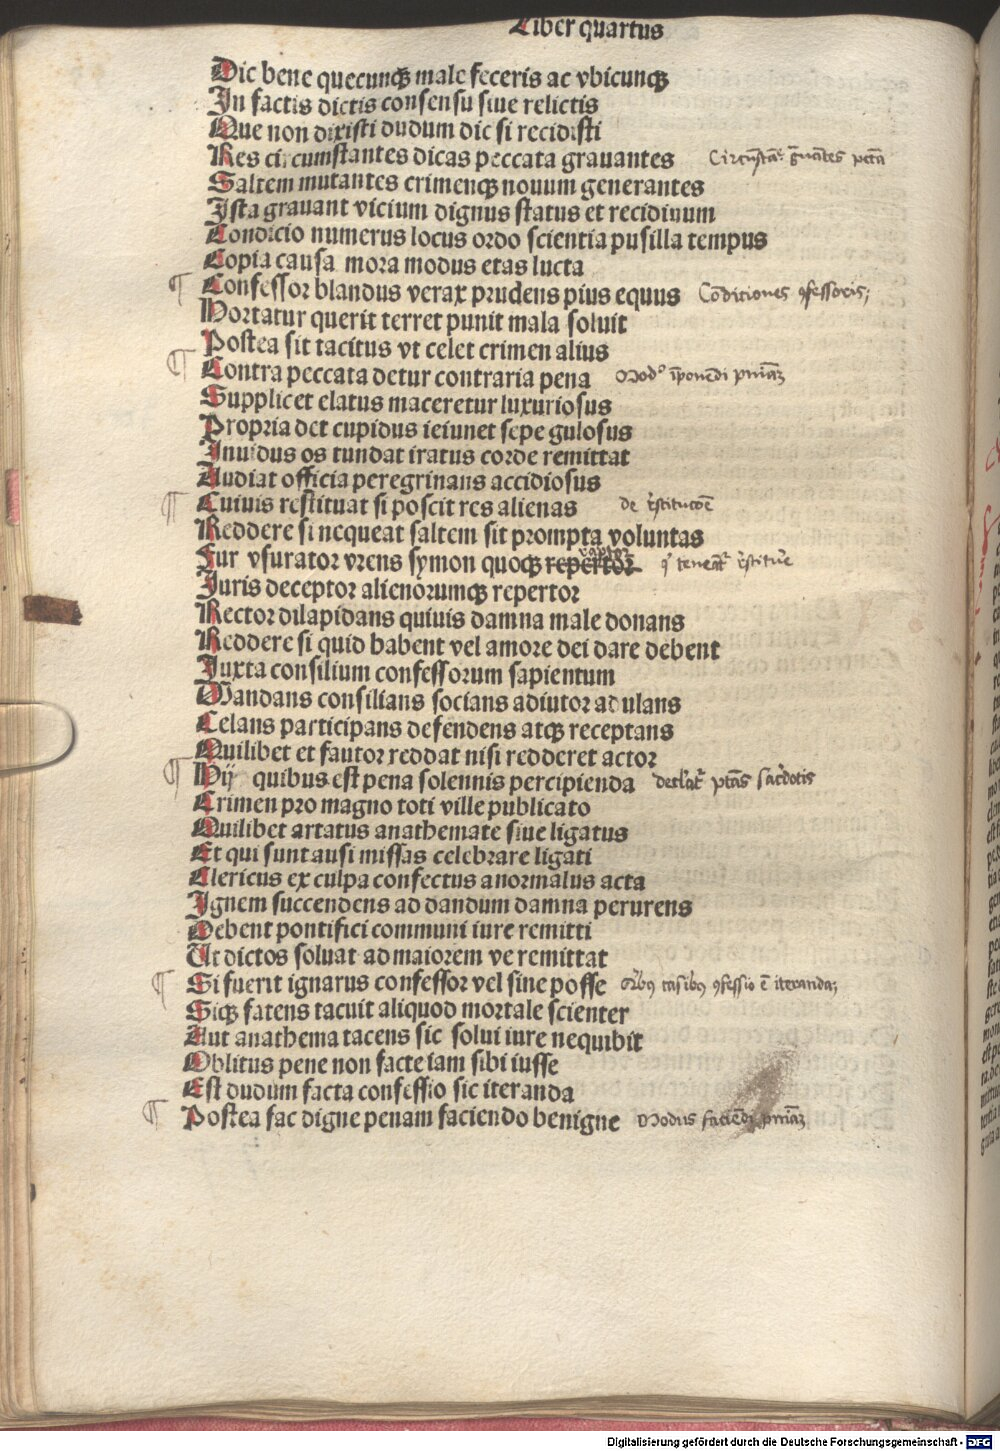 Liber quartus
Dic bene quecunqꝫ male feceris ac vbicunqꝫ
In factis dictis consensu siue relictis
Que non dixisti dudum dic si recidisti
Res circumstantes dicas peccata grauantes
Saltem mutantes crimenqꝫ nouum generantes
Ista grauant vicium dignus status et recidiuum
Condicio numerus locus ordo scientia pusilla tempus
Copia causa mora modus etas lucta
¶ Confessor blandus verax prudens pius equus Conditiones ꝯfessoris;
Hortatur querit terret punit mala soluit
Postea sit tacitus vt celet crimen alius
¶ Contra peccata detur contraria pena
Supplicet elatus maceretur luxuriosus
Propria det cupidus ieiunet sepe gulosus
Inuidus os tundat iratus corde remittat
Audiat officia peregrinans accidiosus
¶ Cuiuis restituat si poscit res alienas de r̄stitucōe
Reddere si nequeat saltem sit prompta voluntas
Fur vsurator vrens symon quoqꝫ repertor raptor
Juris deceptor alienorumqꝫ repertor
Rector dilapidans quiuis damna male donans
Reddere si quid habent vel amore dei dare debent
Juxta consilium confessorum sapientum
Mandans consilians socians adiutor adulans
Celans participans defendens atqꝫ receptans
Quilibet et fautor reddat nisi redderet actor
¶ Hij quibus est pena solennis percipienda
Crimen pro magno toti ville publicato
Quilibet artatus anathemate siue ligatus
Et qui sunt ausi missas celebrare ligati
Clericus ex culpa confectus anormalus acta
Ignem succendens ad dandum damna perurens
Debent pontifici communi iure remitti
Ut dictos soluat ad maiorem ve remittat
¶ Si fuerit ignarus confessor vel sine posse casibꝰ ꝯfessio ē iteranda;
Siqꝫ fatens tacuit aliquod mortale scienter
Aut anathema tacens sic solui iure nequibit
Oblitus pene non facte iam sibi iusse
Est dudum facta confessio sic iteranda
¶ Postea fac digne penam faciendo benigne Modus faciēdi pn̄iaꝫ
Digitalisierung gefördert durch die Deutsche Forschungsgemeinschaft - DFG